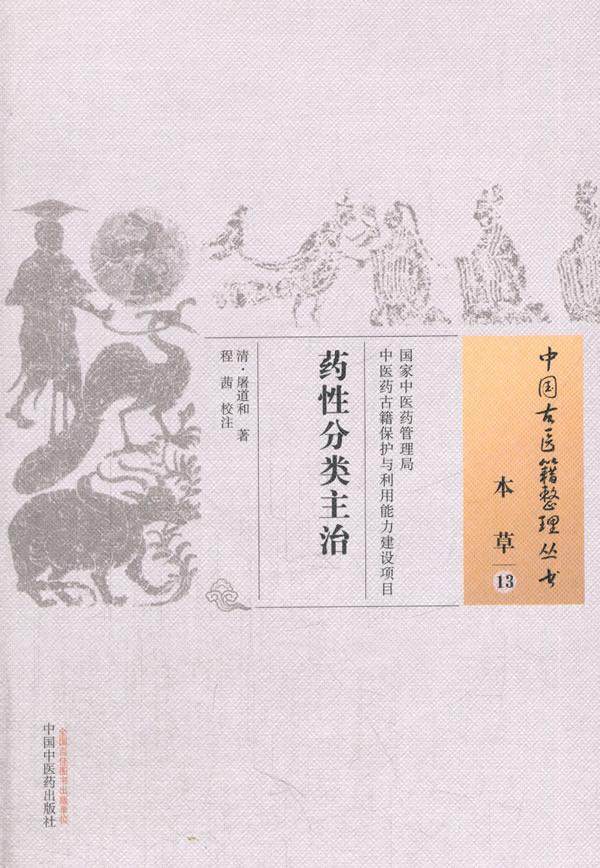 中国古医籍整理丛书
本草
13
国家中医药管理局
中医药古籍保护与利用能力建设项目
药性分类主治
清·屠道和 著
程 茜 校注
全国百佳图书出版单位
中国中医药出版社